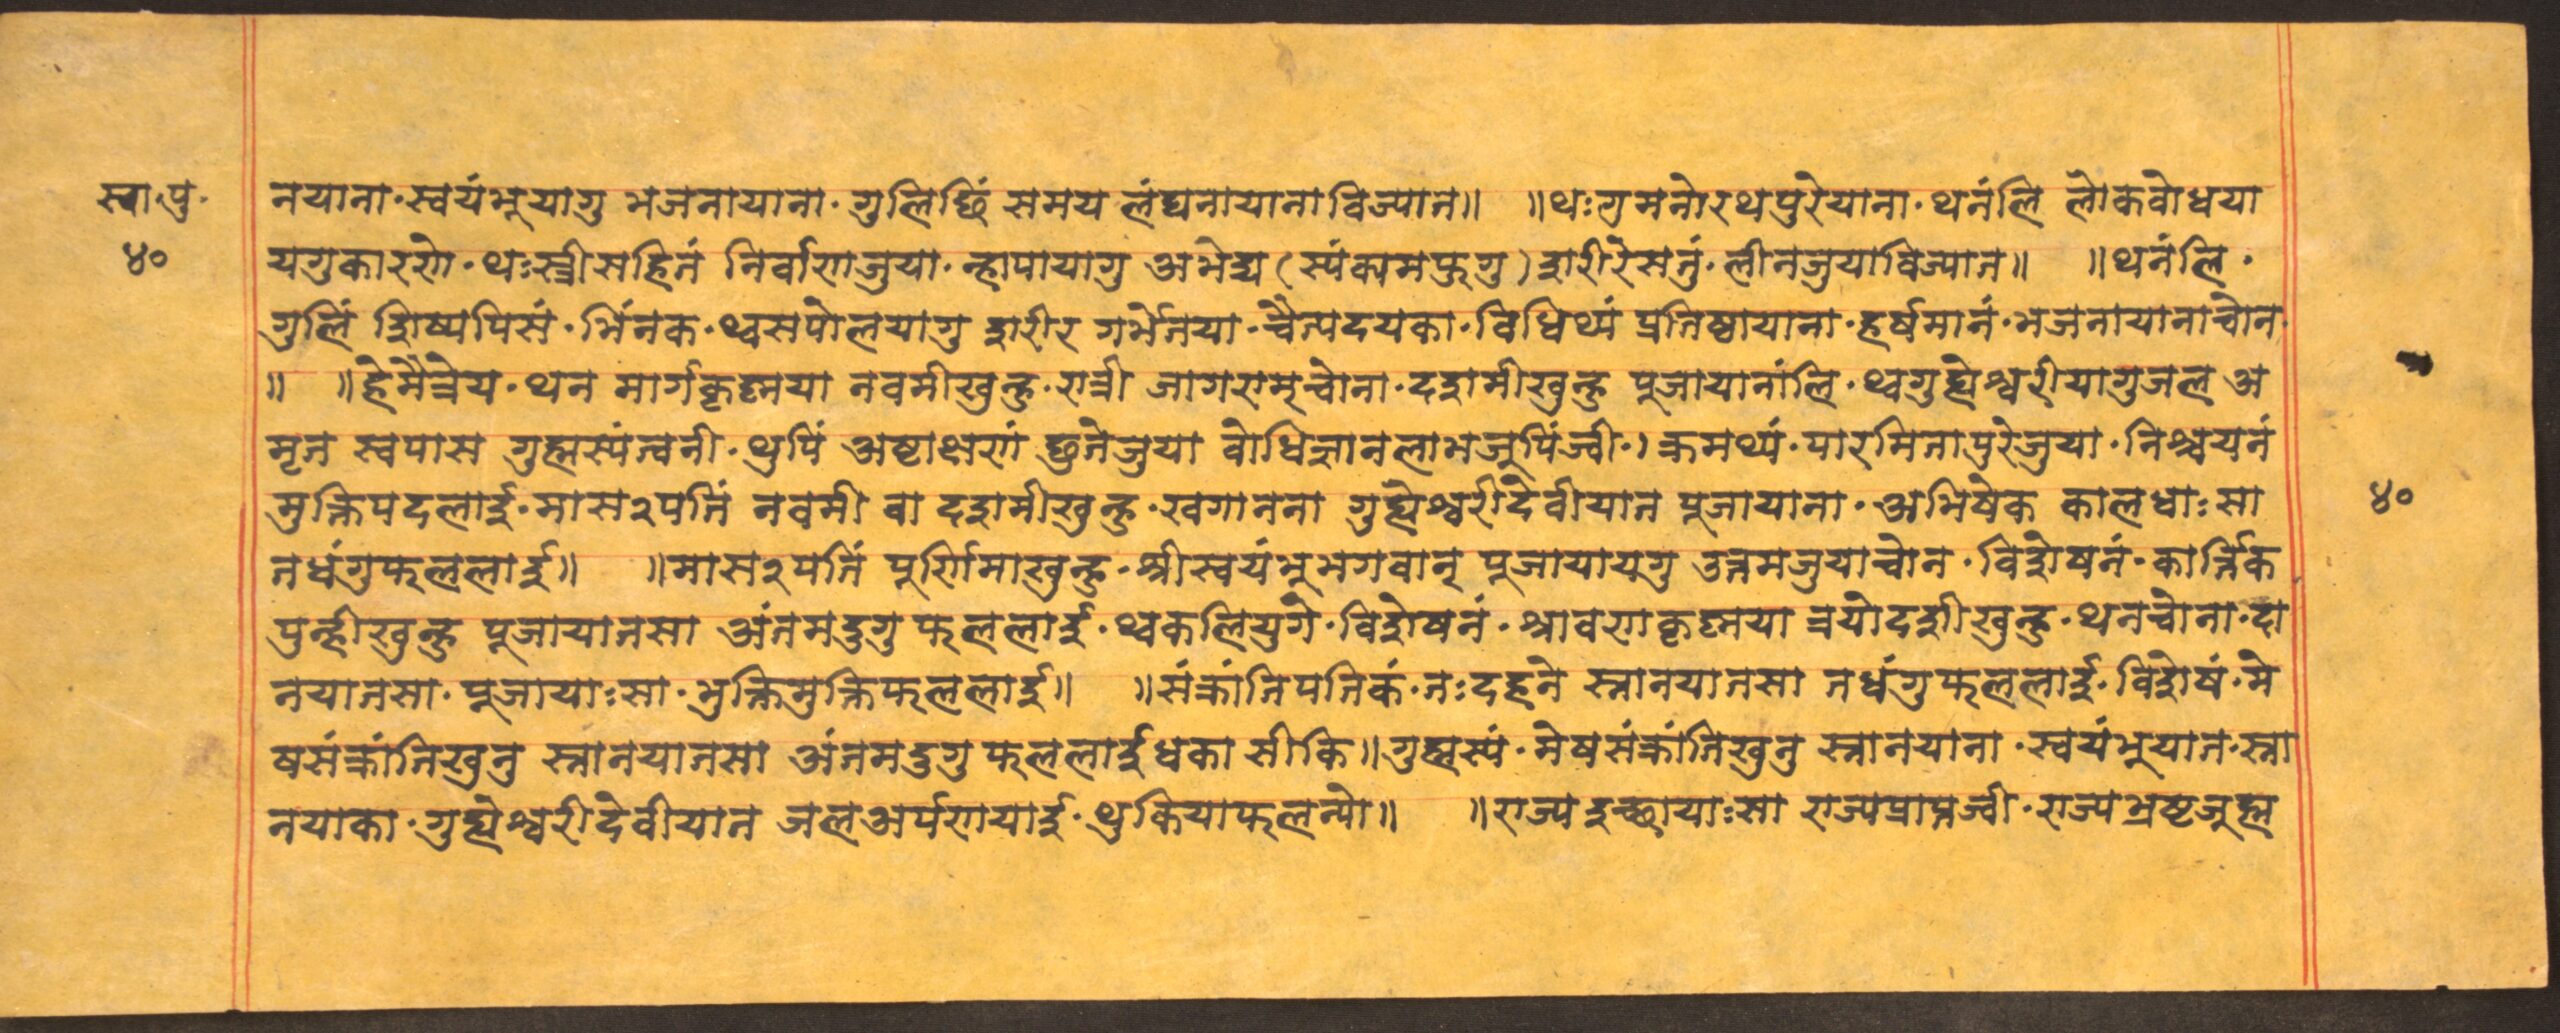 स्वा॰पु॰
४०
नयाना॰स्वयंभूयागु भजनायाना॰गुलिछिं समय लंघनायानाविज्यात॥ ॥थःगुमनोरथपुरेयाना॰थनंलि लोकवोधया
यगुकारणे॰थःस्त्रीसहितं निर्वाणजुया॰न्हापायागु अभेद्य (स्यंक्यमफुगु) शरीरेसतुं॰लीनजुयाविज्यात॥ ॥थनंलि॰
गुलिं शिष्यपिसं॰भिंनक॰थ्वसपोलयागु शरीर गर्भेतया॰चैत्यदयका॰विधिथ्यं प्रतिष्ठायाना॰हर्षमानं॰भजनायानाचोन॰
॥ ॥हेमैत्रेय॰थन मार्गकृष्णया नवमीखुन्हु॰रात्री जागरणम्चोना॰दशमीखुन्हु पूजायानांलि॰थ्वगुह्येश्वरीयागुजल अ
मृत स्वपास गुह्मस्यंत्वनी॰थुपिं अष्टाक्षणं छुतेजुया वोधिज्ञानलाभजूपिंज्वी॰। क्रमथ्यं॰पारमितापुरेजुया॰निश्चयनं
मुक्तिपदलाई॰मास२पतिं नवमी वा दशमीखुन्हु॰खगानना गुह्येश्वरीदेवीयात पूजायाना॰अभिषेक कालधाःसा
तधंगुफललाई॥ ॥मास२पतिं पूर्णिमाखुन्हु॰श्रीस्वयंभूभगवान् पूजायायगु उत्तमजुयाचोन॰विशेषनं॰कार्त्तिक
पुन्हीखुन्हु पूजायातसा अंतमदुगु फललाई॰थ्वकलियुगे॰विशेषनं॰श्रावणकृष्णया त्रयोदशीखुन्हु॰थनचोना॰दा
नयातसा॰पूजायाःसा॰भुक्तिमुक्तिफललाई॥ ॥संक्रांतिपतिकं॰तःदहने स्नानयातसा तधंगुफललाई॰विशेषं॰मे
षसंक्रांतिखुनु स्नानयातसा अंतमदुगु फललाईधका सीकि॥गुह्मस्यं॰मेषसंक्रांतिखुनु स्नानयाना॰स्वयंभूयात॰स्ना
नयाका॰गुह्येश्वरीदेवीयात जलअर्पणयाई॰थुकियाफलन्यो॥ ॥राज्य इच्छायाःसा राज्यप्राप्तज्वी॰राज्यभ्रष्टजूह्म
४०